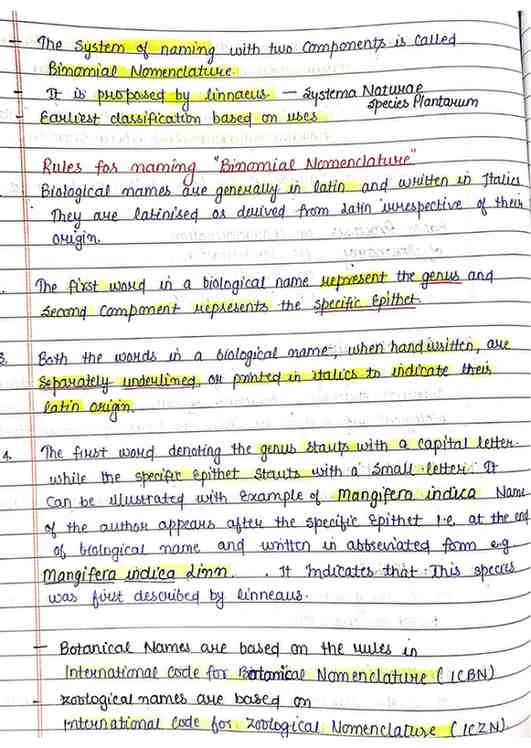 - The System of naming with two Components is called
Binomial Nomenclature.
- It is proposed by linnaeus - Systema Naturae
Species Plantarum
- Earliest classification based on uses
Rules for naming "Binomial Nomenclature"
Biological names are generally in latin and written in Italics
They are latinised or derived from Latin irrespective of their
origin.
The first word in a biological name represent the genus and
second Component represents the specific Epithet.
3. Both the words in a biological name, when handwritten, are
separately underlined, or printed in italics to indicate their
latin origin.
4. The first word denoting the genus starts with a capital letter.
while the specific Epithet starts with a small letter. It
Can be illustrated with Example of Mangifera indica Name
of the author appears after the specific Epithet i.e. at the end
of biological name and written in abbreviated form e.g
Mangifera indica Linn. . It indicates that This species
was first described by linneaus.
- Botanical Names are based on the rules in
International code for Botanical Nomenclature (ICBN)
- zoological names are based on
International Code for Zoological Nomenclature (ICZN)